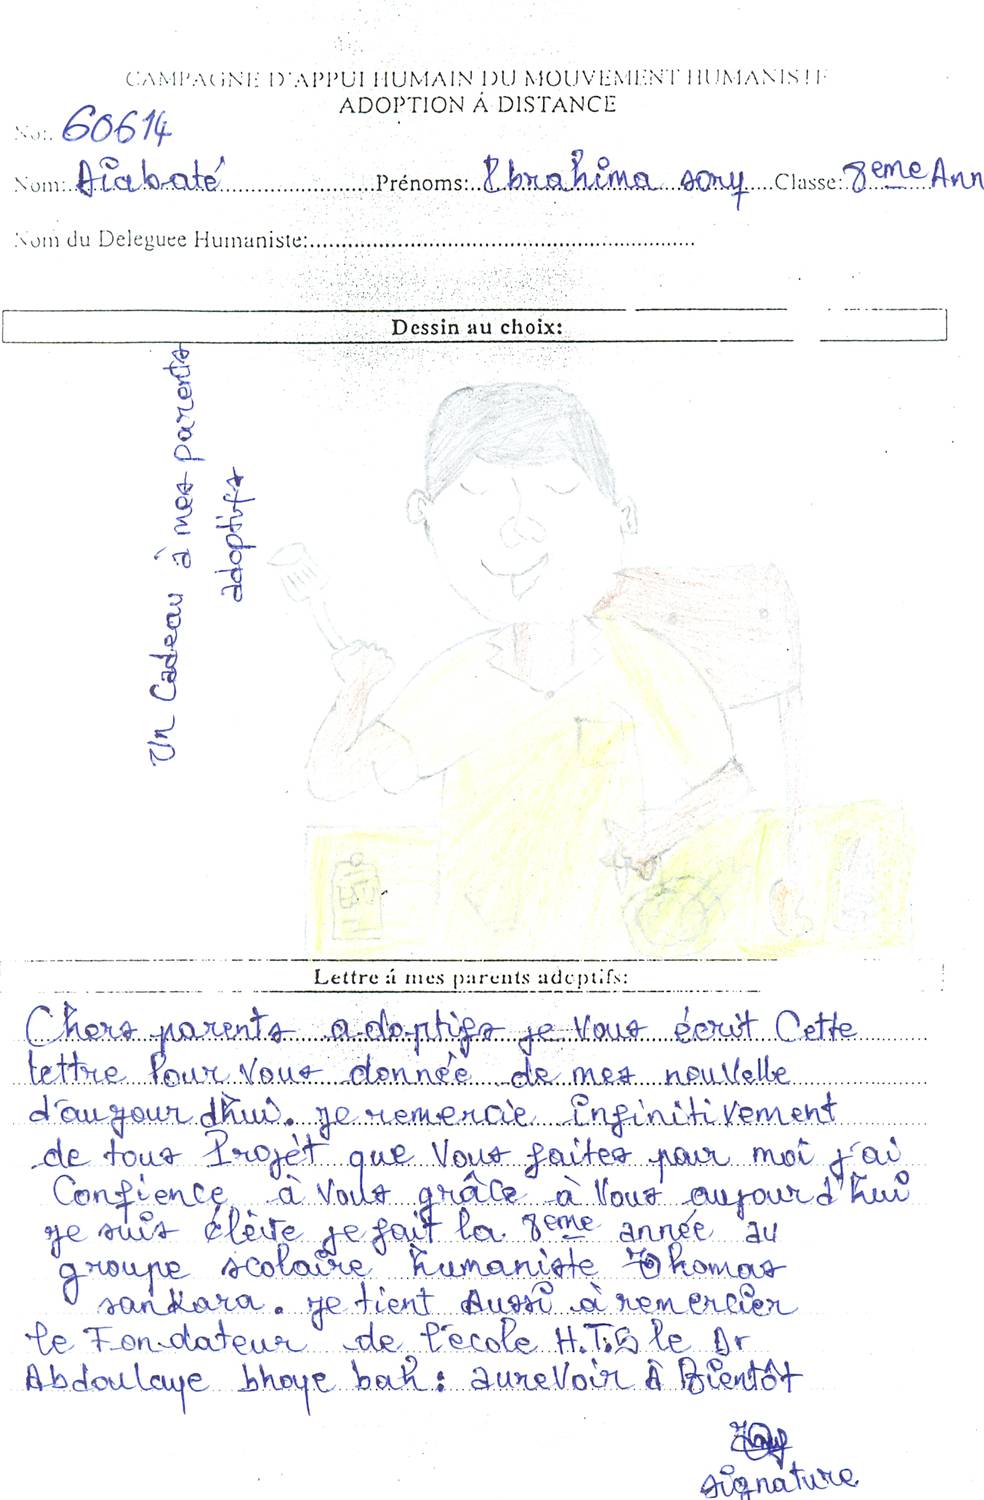 CAMPAGNE D'APPUI HUMAIN DU MOUVEMENT HUMANISTE
ADOPTION Á DISTANCE
No:. 60614
Nom: Diabaté Prénoms: Ibrahima sory Classe: 8eme Ann
Nom du Deleguee Humaniste:
Dessin au choix:
Un Cadeau à mes parents
adoptifs
EAU
Lettre á mes parents adoptifs:
Chers parents adoptifs je Vous écrit Cette
lettre Pour Vous donnée de mes nouvelle
d'aujourdhui. je remercie infinitivement
de tous Projèt que Vous faites pour moi j'ai
Confience à Vous grâce à Vous aujourd'hui
je suis élève je fait la 8eme année au
groupe scolaire humaniste Thomas
sankara. je tient Aussi à remercier
le Fondateur de l'école H.T.S le Dr
Abdoulaye bhoye bah: aurevoir à Bientôt
signature